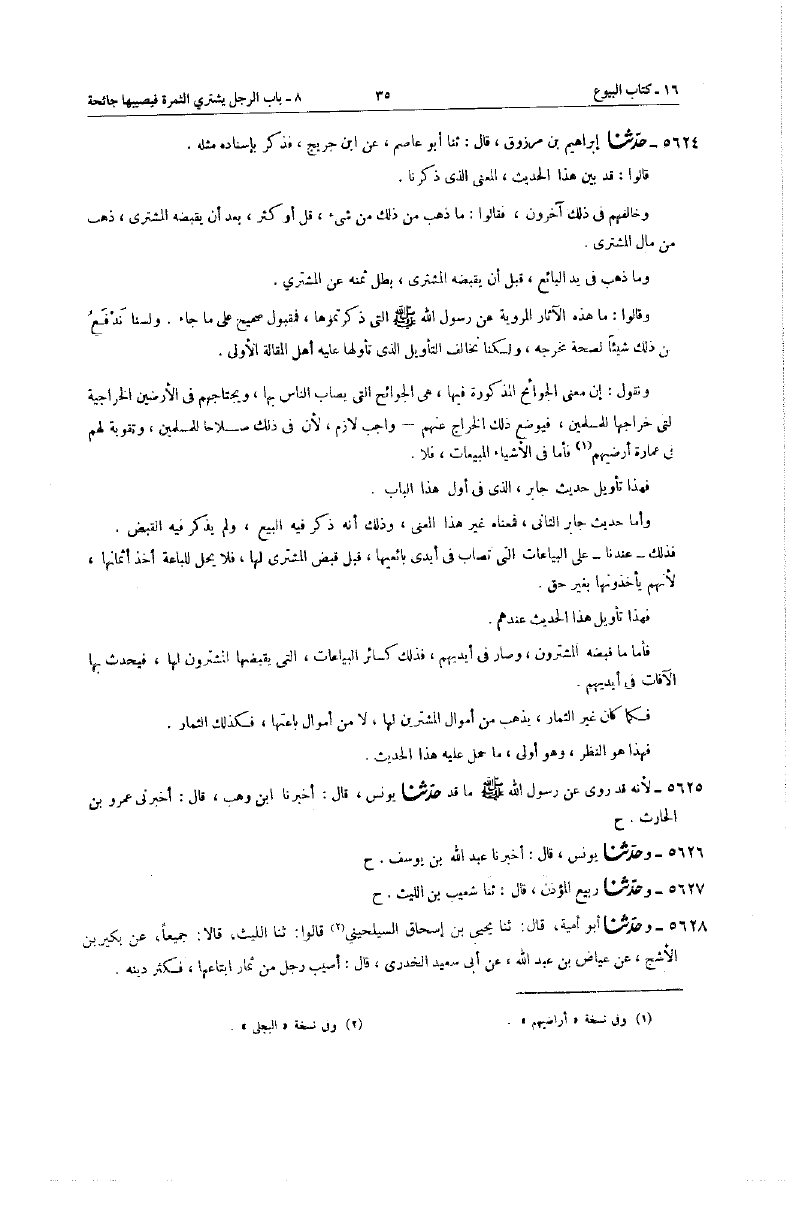 ١٦ ـ كتاب البيوع ٣٥ ٨ ـ باب الرجل يشتري الثمرة فيصيبها جائحة
٥٦٢٤ ـ حدّثنا إبراهيم بن مرزوق ، قال : ثنا أبو عاصم ، عن ابن جريج ، فذكر بإسناده مثله .
قالوا : قد بين هذا الحديث ، المعنى الذى ذكرنا .
وخالفهم فى ذلك آخرون ، فقالوا : ما ذهب من ذلك من شىء ، قل أو كثر ، بعد أن يقبضه المشترى ، ذهب
من مال المشترى .
وما ذهب فى يد البائع ، قبل أن يقبضه المشترى ، بطل ثمنه عن المشتري .
وقالوا : ما هذه الآثار المروية عن رسول الله ﷺ التى ذكرتموها ، فمقبول صحيح على ما جاء . ولسنا نَدْفَعُ
ن ذلك شيئاً لصحة مخرجه ، ولكنا نخالف التأويل الذى تأولها عليه أهل المقالة الأولى .
ونقول : إن معنى الجوائح المذكورة فيها ، هى الجوائح التى يصاب الناس بها ، ويجتاحهم فى الأرضين الخراجية
لتى خراجها للمسلمين ، فيوضع ذلك الخراج عنهم — واجب لازم ، لأن فى ذلك صلاحا للمسلمين ، وتقوية لهم
فى عمارة أرضيهم(١) فأما فى الأشياء المبيعات ، فلا .
فهذا تأويل حديث جابر ، الذى فى أول هذا الباب .
وأما حديث جابر الثانى ، فمعناه غير هذا المعنى ، وذلك أنه ذكر فيه البيع ، ولم يذكر فيه القبض .
فذلك ـ عندنا ـ على البياعات التى تصاب فى أيدى بائعيها ، قبل قبض المشترى لها ، فلا يحل للباعة أخذ أثمانها ،
لأنهم يأخذونها بغير حق .
فهذا تأويل هذا الحديث عندهم .
فأما ما قبضه المشترون ، وصار فى أيديهم ، فذلك كسائر البياعات ، التى يقبضها المشترون لها ، فيحدث بها
الآفات فى أيديهم .
فكما كان غير الثمار ، يذهب من أموال المشترين لها ، لا من أموال باعتها ، فكذلك الثمار .
فهذا هو النظر ، وهو أولى ، ما حمل عليه هذا الحديث .
٥٦٢٥ ـ لأنه قد روى عن رسول الله ﷺ ما قد حدّثنا يونس ، قال : أخبرنا ابن وهب ، قال : أخبرنى عمرو بن
الحارث . ح
٥٦٢٦ ـ وحدّثنا يونس ، قال : أخبرنا عبد الله بن يوسف . ح
٥٦٢٧ ـ وحدّثنا ربيع المؤذن ، قال : ثنا شعيب بن الليث . ح
٥٦٢٨ ـ وحدّثنا أبو أمية، قال: ثنا يحيى بن إسحاق السيلحيني(٢) قالوا: ثنا الليث، قالا: جميعاً، عن بكير بن
الأشج ، عن عياض بن عبد الله ، عن أبى سعيد الخدرى ، قال : أصيب رجل من ثمار ابتاعها ، فكثر دينه .
(١) وفى نسخة « أراضيهم » . (٢) وفى نسخة « البجلى » .